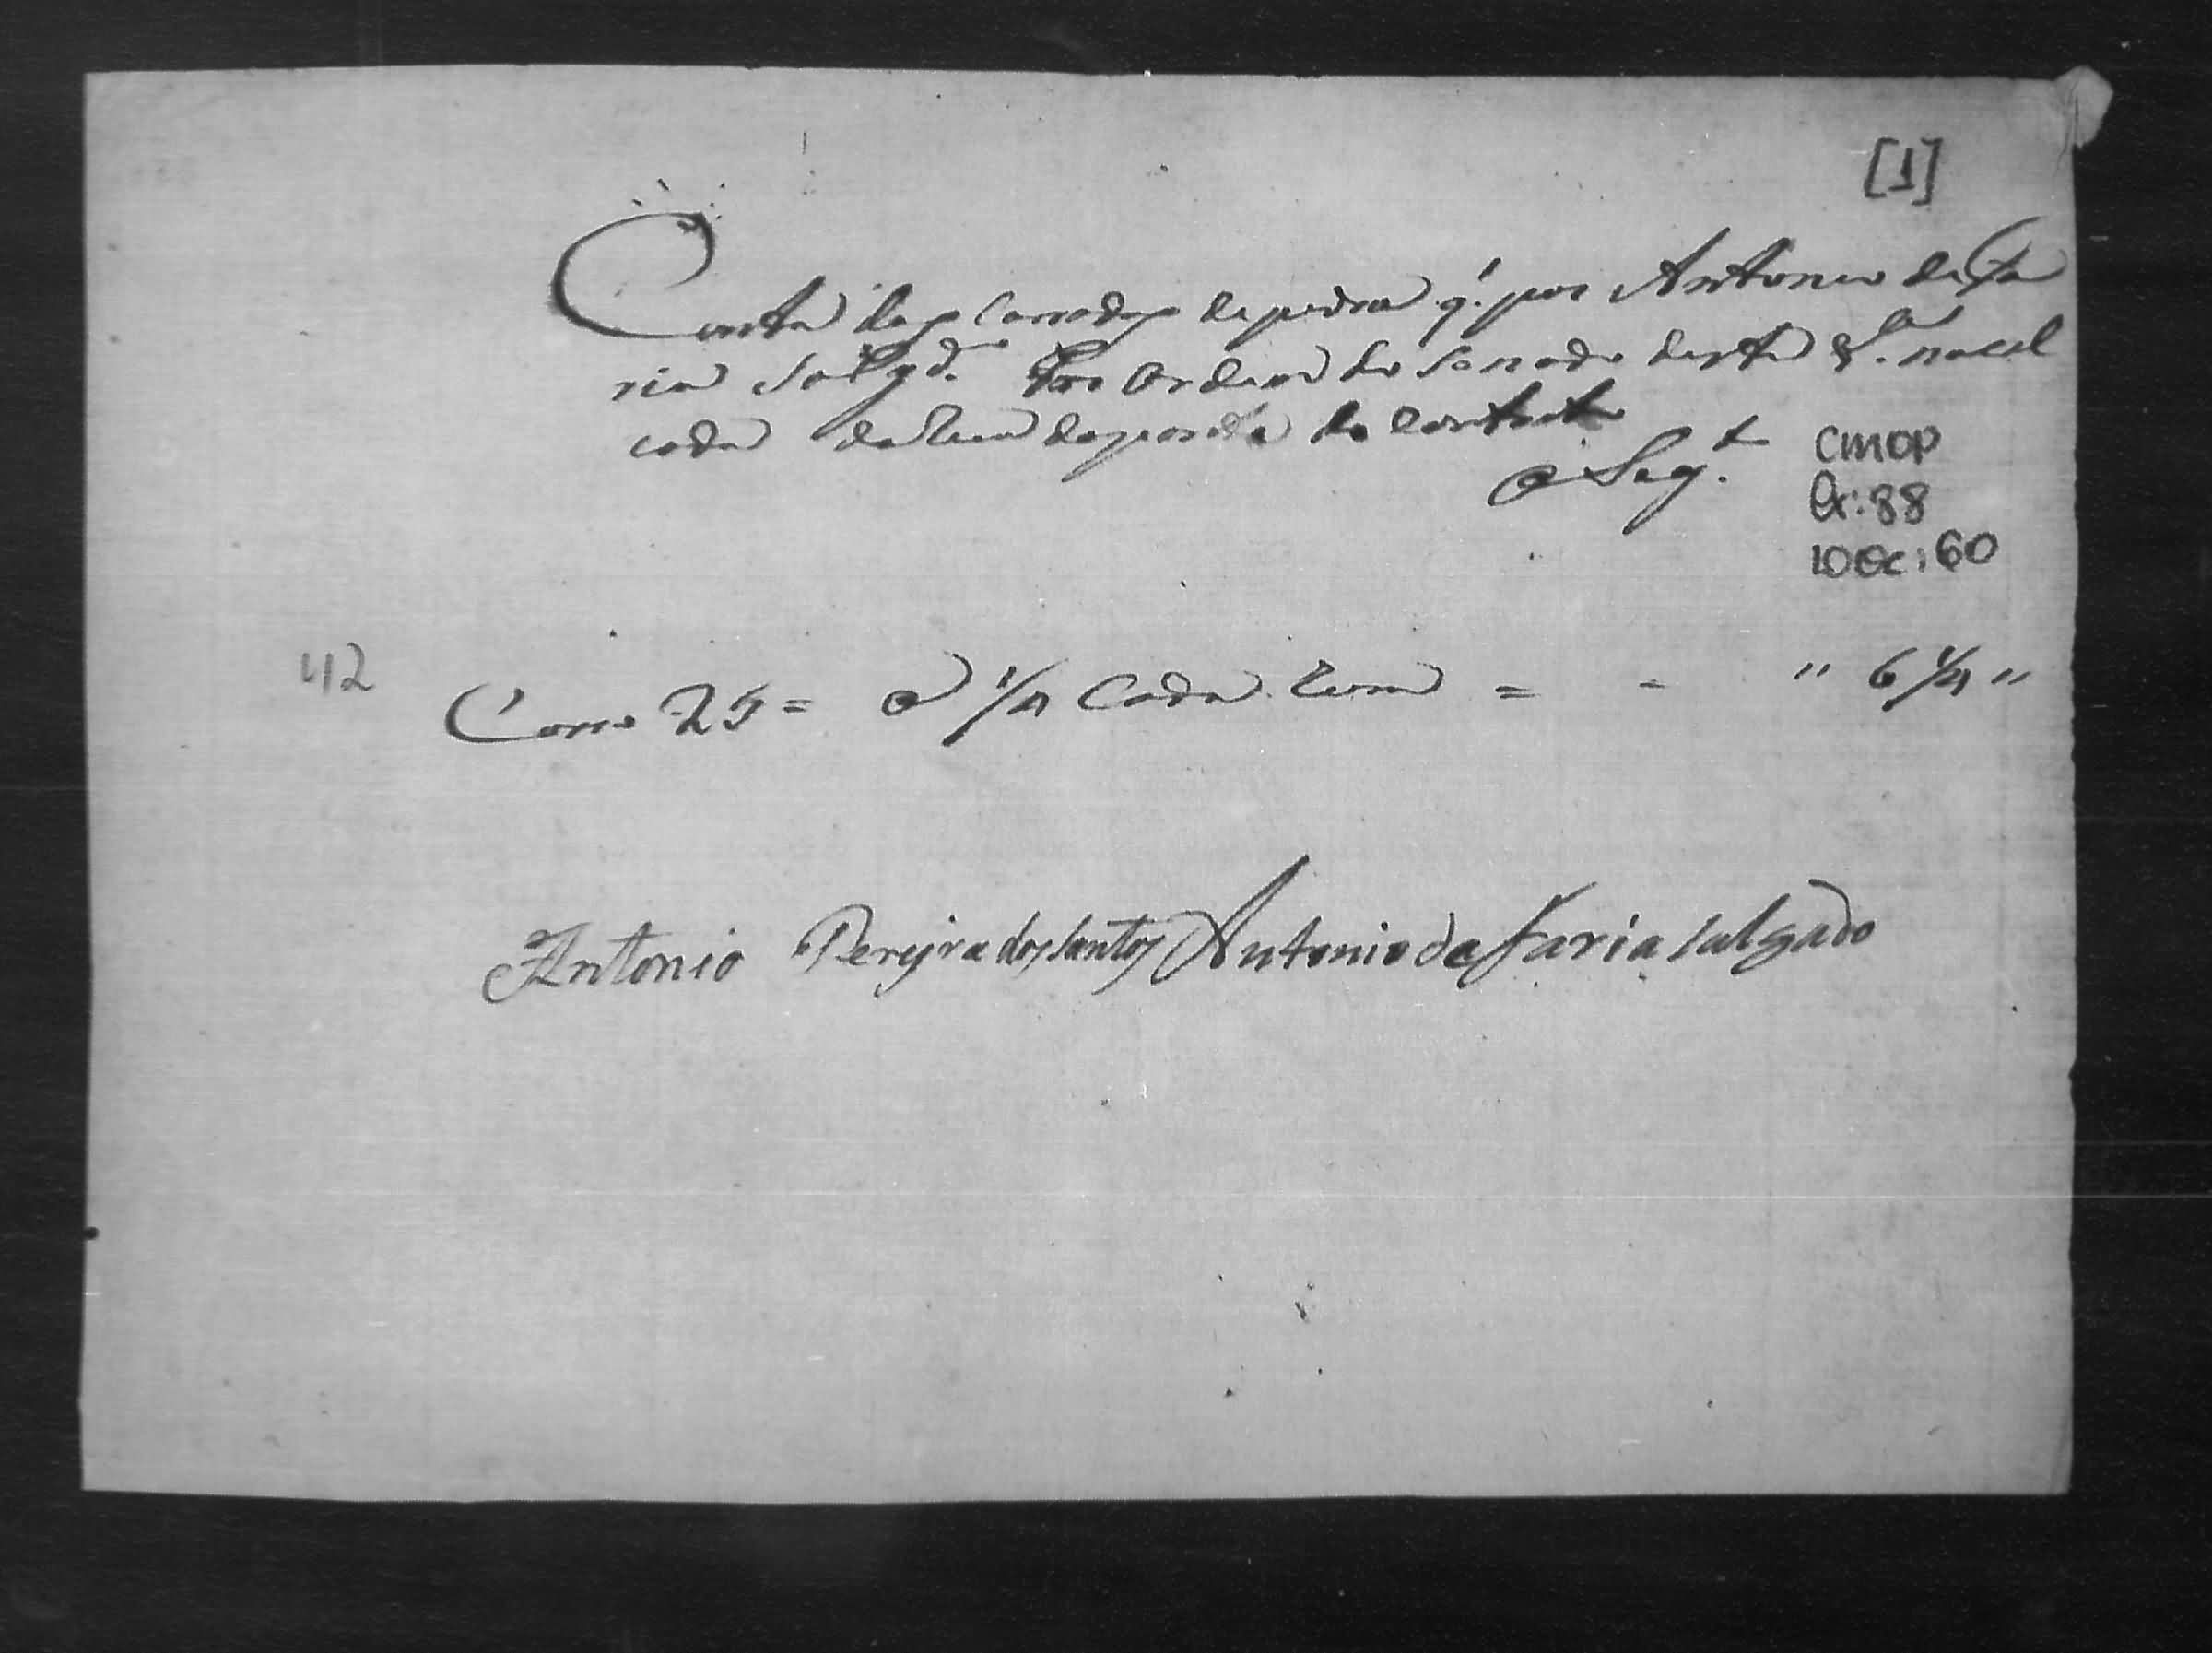 [1]
Conta das Carradas de pedra q. pos Antonio de Fa
ria Salgd.º Por Ordem do Senado desta V.ª na cal
cada da Rua da ponte do
o Seg.te
CMOP
Cx: 88
DOC: 60
42
Carro 25 = a 1/4 Cada hum = - " 6 1/4 "
Antonio Pereyra dos Santos Antonio de Faria Salgado